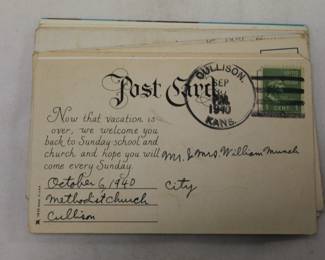 Post Card
CULLISON,
SEP
1940
KANS.
1 CENT 1
Now that vacation is
over, we welcome you
back to Sunday-school and
church and hope you will
come every Sunday.
Mr. & Mrs. William Munch
City
October 6, 1940
Methodist Church
Cullison